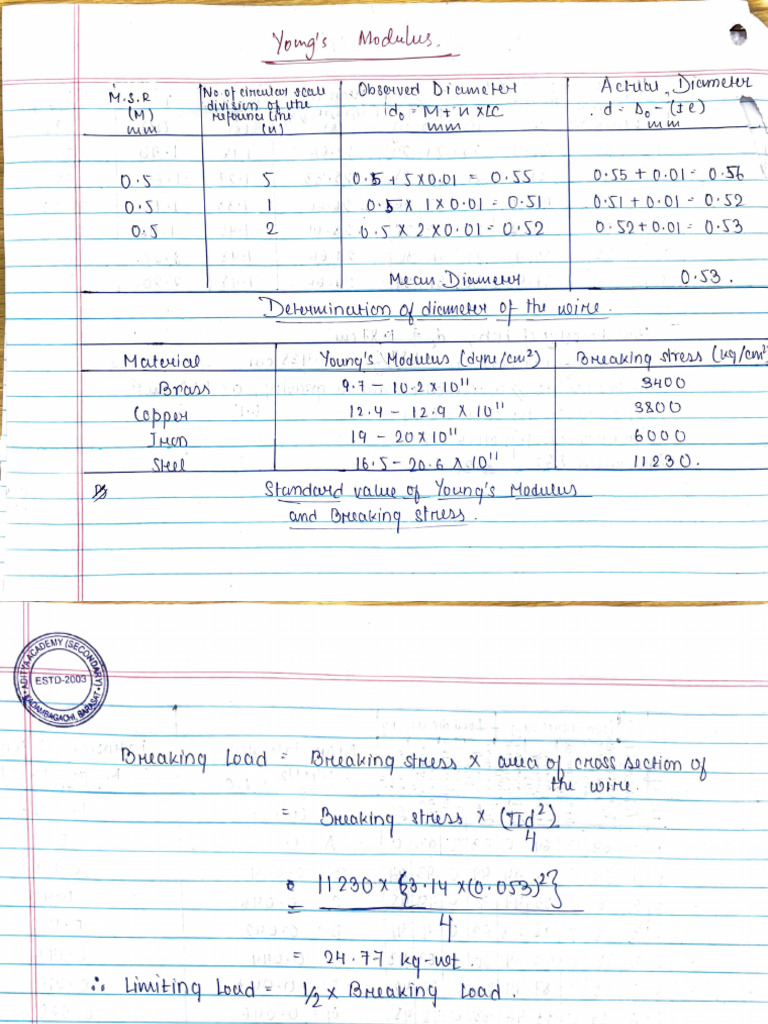 Young's Modulus.
M.S.R (M) mm | No. of circular scale division of the reference line (n) | Observed Diameter d₀ = M + n × LC mm | Actual Diameter d = D₀ - (± e) mm
0.5 | 5 | 0.5 + 5×0.01 = 0.55 | 0.55 + 0.01 = 0.56
0.5 | 1 | 0.5 × 1 × 0.01 = 0.51 | 0.51 + 0.01 = 0.52
0.5 | 2 | 0.5 × 2 × 0.01 = 0.52 | 0.52 + 0.01 = 0.53
Mean Diameter | 0.53.
Determination of diameter of the wire.
Material | Young's Modulus (dyne/cm²) | Breaking stress (kg/cm²)
Brass | 9.7 – 10.2×10¹¹ | 3400
Copper | 12.4 – 12.9 × 10¹¹ | 3800
Iron | 19 – 20×10¹¹ | 6000
Steel | 16.5 – 20.6 × 10¹¹ | 11230.
Standard value of Young's Modulus
and Breaking stress.
ADITYA ACADEMY (SECONDARY)
ESTD-2003
KADAMBAGACHI, BARASAT
Breaking Load = Breaking stress × area of cross section of
the wire.
= Breaking stress × (πd²)/4
= 11230 × {3.14 × (0.053)²}/4
= 24.77 kg-wt.
∴ Limiting Load = 1/2 × Breaking Load.